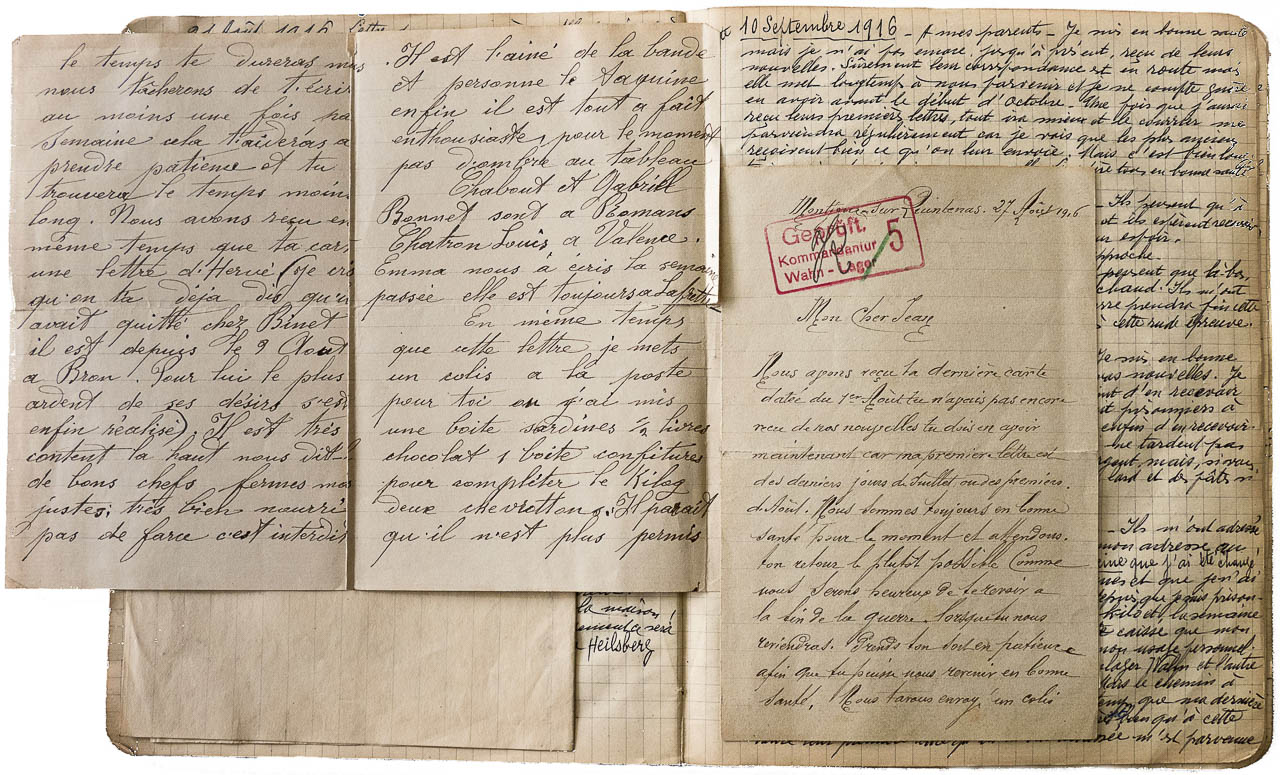 21 Août 1916 Lettre
le temps te dureras mais
nous tâcherons de t'écrir
au moins une fois par
semaine cela t'aideras a
prendre patience et tu
trouvera le temps moins
long. Nous avons reçu en
même temps que ta car
une lettre d'Hervé (je crois
qu'on ta déja dis qu'il
avait quitté chez Binet
il est depuis le 9 Aout
a Bron. Pour lui le plus
ardent de ses désirs s'est
enfin réalisé). Il est très
content la haut nous dit-il
de bons chefs fermes mais
justes, très bien nourri
pas de farce c'est interdit
Il est l'ainé de la bande
et personne le taquine
enfin il est tout a fait
enthousiaste, pour le moment
pas d'ombre au tableau
Chabout et Gabriel
Bonnet sont a Romans
Chatron Louis a Valence.
Emma nous à écris la semaine
passée elle est toujours a Lafrette
En même temps
que cette lettre je mets
un colis a la poste
pour toi ou j'ai mis
une boite sardines 1/2 livres
chocolat 1 boite confitures
pour compléter le Kilog
deux chevrettons. Il parait
qu'il n'est plus permis
la maison
sera
Heilsberg
10 Septembre 1916 - A mes parents - Je suis en bonne santé
mais je n'ai pas encore, jusqu'à présent reçu de leurs
nouvelles. Sûrement leur correspondance est en route mais
elle met longtemps à nous parvenir et je ne compte guère
en avoir avant le début d'Octobre. Une fois que j'aurai
reçu leurs premières lettres, tout ira mieux et le courrier me
parviendra régulièrement car je vois que les plus anciens
reçoivent bien ce qu'on leur envoie. Mais c'est bien long
en bonne santé
Montigny-sur-Quintenas. 27 Août 1916
Geprüft.
Kommandantur
Wahn-Lager
5
Mon Cher Jean
Nous avons reçu ta dernière carte
datée du 1er Aout tu n'avais pas encore
reçu de nos nouvelles tu dois en avoir
maintenant car ma première lettre est
des derniers jours de Juillet ou des premiers.
d'Août. Nous sommes toujours en bonne
santé pour le moment et attendons.
ton retour le plutôt possible Comme
nous serons heureux de te revoir à
la fin de la guerre. lorsque tu nous
reviendras. Prends ton sort en patience
afin que tu puisse nous revenir en bonne
santé. Nous t'avons envoyé un colis
Ils pensent qu'à
et ils espèrent recevoir
un espoir.
pensent que là-bas
chaud. Ils m'ont
prendra fin cette
cette rude épreuve
Je suis en bonne
nouvelles. Je
d'en recevoir
prisonniers à
enfin d'en recevoir
ne tardent pas
argent mais, si vous
lard et des pâtes
- Ils m'ont adressé
mon adresse au
que j'ai été changé
et que j'en ai
depuis que je suis prison-
kilo et, la semaine
caisse que mon
mon usage personnel.
lager Wahn et l'autre
dans le chemin à
que ma dernière
qu'à cette
m'est parvenue